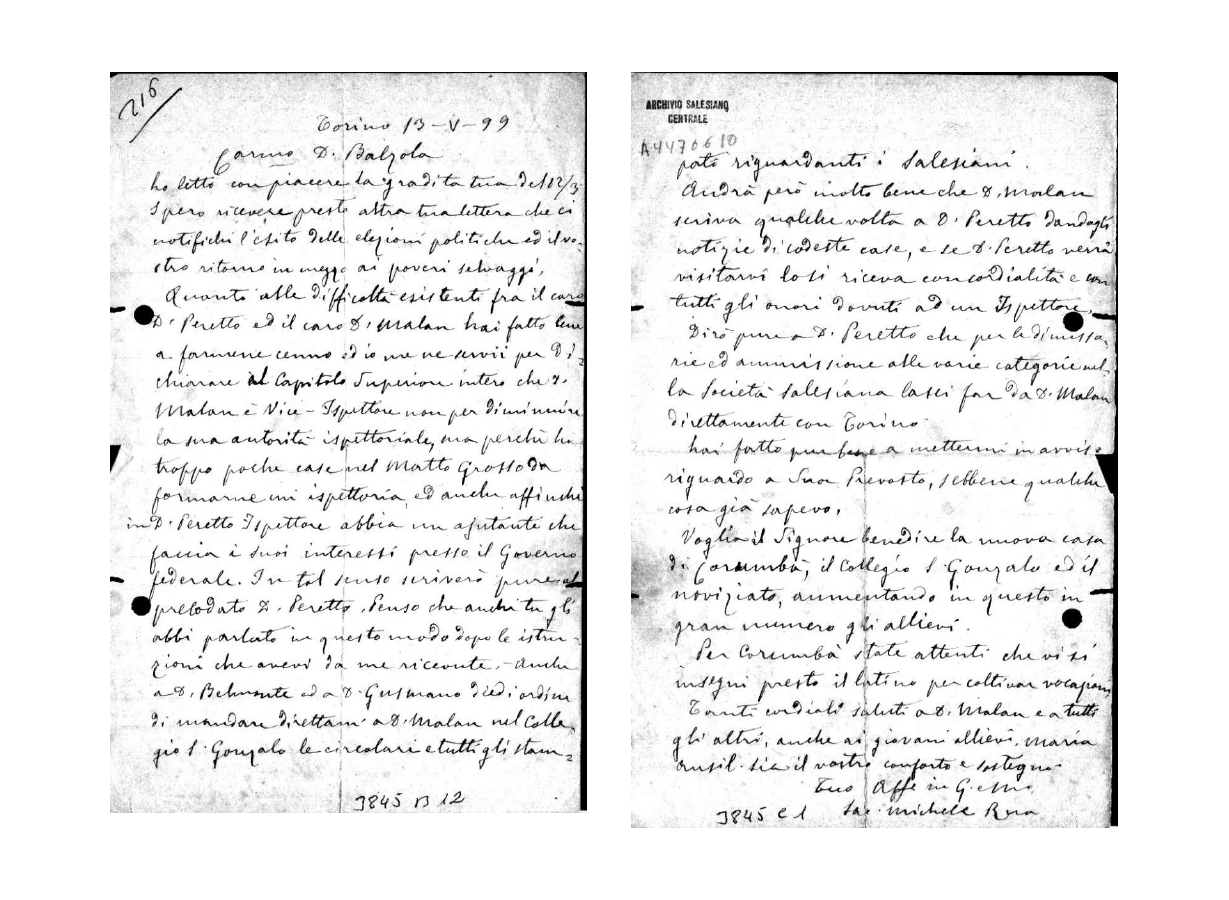 216
Torino 13-V-99
Carmo D. Balzola
ho letto con piacere la gradita tua del 12/3
Spero ricevere presto altra tua lettera che ci
notifichi l'esito delle elezioni politiche ed il vo-
stro ritorno in mezzo ai poveri selvaggi.
Quanto alle difficoltà esistenti fra il caro
D. Peretto ed il caro D. Malan hai fatto bene
a farmene cenno ed io me ne servii per di-
chiarare al Capitolo Superiore intero che D.
Malan è Vice-Ispettore non per diminuire
la sua autorità ispettoriale, ma perchè ha
troppo poche case nel Matto Grosso da
formarne un ispettoria, ed anche affinchè
in D. Peretto Ispettore abbia un ajutante che
faccia i suoi interessi presso il Governo
federale. In tal senso scriverò pure al
prelodato D. Peretto. Penso che anche tu gli
abbi parlato in questo modo dopo le istru-
zioni che avevi da me ricevute. - Anche
a D. Belmonte ed a D. Gusmano diedi ordine
di mandare direttam. a D. Malan nel Colle-
gio S. Gonzalo le circolari e tutti gli stam-
3845 B 12
ARCHIVIO SALESIANO
CENTRALE
A4470610
pati riguardanti i Salesiani.
Andrà però molto bene che D. Malan
scriva qualche volta a D. Peretto dandogli
notizie di codeste case, e se D. Peretto verrà
visitarvi lo si riceva con cordialità e con
tutti gli onori dovuti ad un Ispettore.
Dirò pure a D. Peretto che per le dimisso-
rie ed ammissione alle varie categorie nel-
la Società Salesiana lasci far da D. Malan
direttamente con Torino.
hai fatto pur bene a mettermi in avviso
riguardo a Suor Prevosto, sebbene qualche
cosa già sapevo.
Voglia il Signore benedire la nuova casa
di Corumbà, il Collegio S. Gonzalo ed il
noviziato, aumentando in questo in
gran numero gli allievi.
Per Corumbà state attenti che vi si
insegni presto il latino per coltivar vocazioni
Tanti cordiali saluti a D. Malan e a tutti
gli altri, anche ai giovani allievi. Maria
Ausil. sia il vostro conforto e sostegno
Tuo Aff. in G.
Sac. Michele Rua
3845 C 1